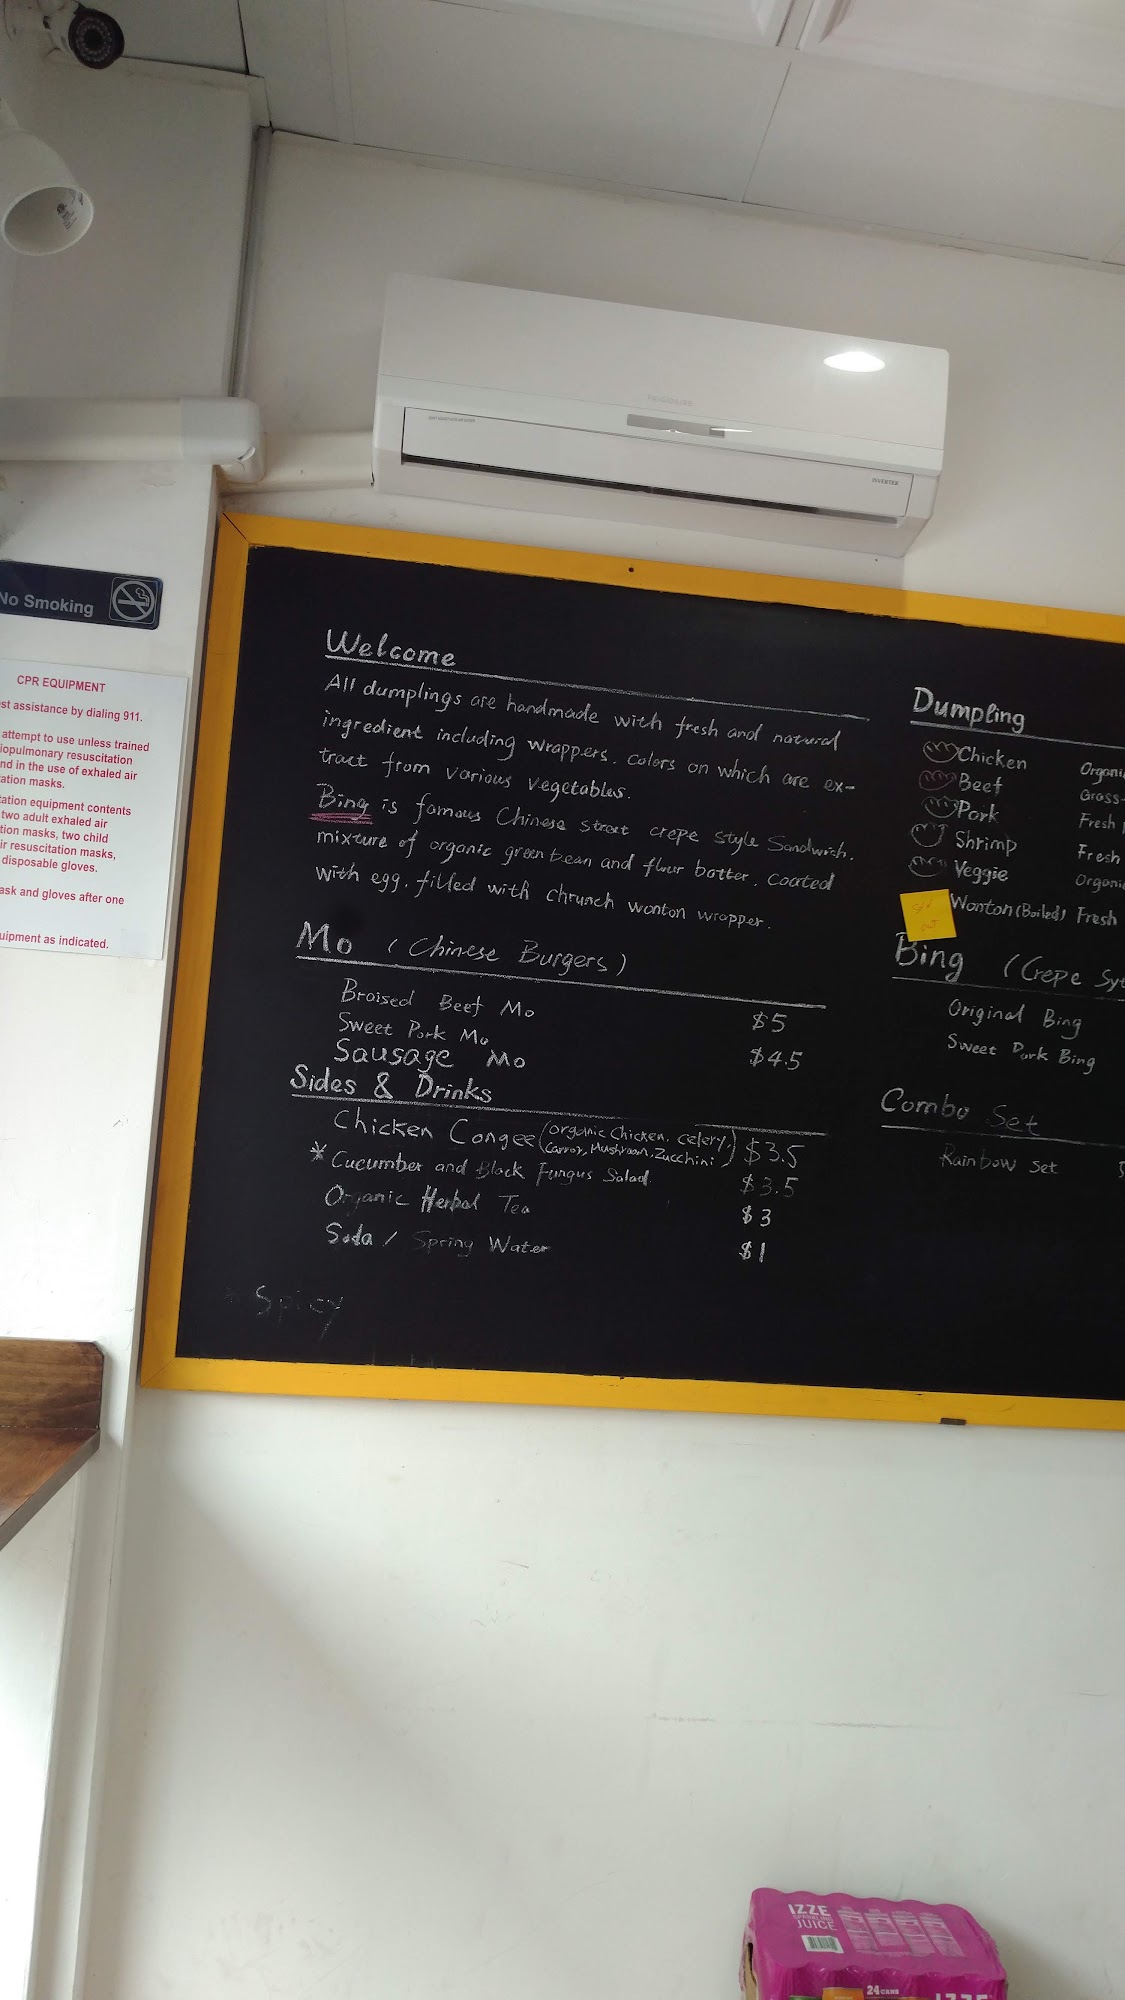 FRIGIDAIRE
INVERTER
No Smoking
CPR EQUIPMENT
st assistance by dialing 911.
attempt to use unless trained
iopulmonary resuscitation
nd in the use of exhaled air
ation masks.
tation equipment contents
two adult exhaled air
tion masks, two child
ir resuscitation masks,
disposable gloves.
ask and gloves after one
uipment as indicated.
Welcome
All dumplings are handmade with fresh and natural
ingredient including wrappers. colors on which are ex-
tract from various vegetables.
Bing is famous Chinese street crepe style Sandwich.
mixture of organic green bean and flour batter. coated
with egg. filled with chrunch wonton wrapper.
Mo (Chinese Burgers)
Braised Beef Mo $5
Sweet Pork Mo
Sausage Mo $4.5
Sides & Drinks
Chicken Congee (organic Chicken, celery, Carrot, Mushroom, Zucchini) $3.5
* Cucumber and Black Fungus Salad $3.5
Organic Herbal Tea $3
Soda / Spring Water $1
* Spicy
Dumpling
Chicken Organi
Beef Grass-
Pork Fresh
Shrimp Fresh
Veggie Organi
Wonton (Boiled) Fresh
out
Bing (Crepe Sy
Original Bing
Sweet Pork Bing
Combo Set
Rainbow Set
IZZE
SPARKLING
JUICE
24 CANS
IZZE